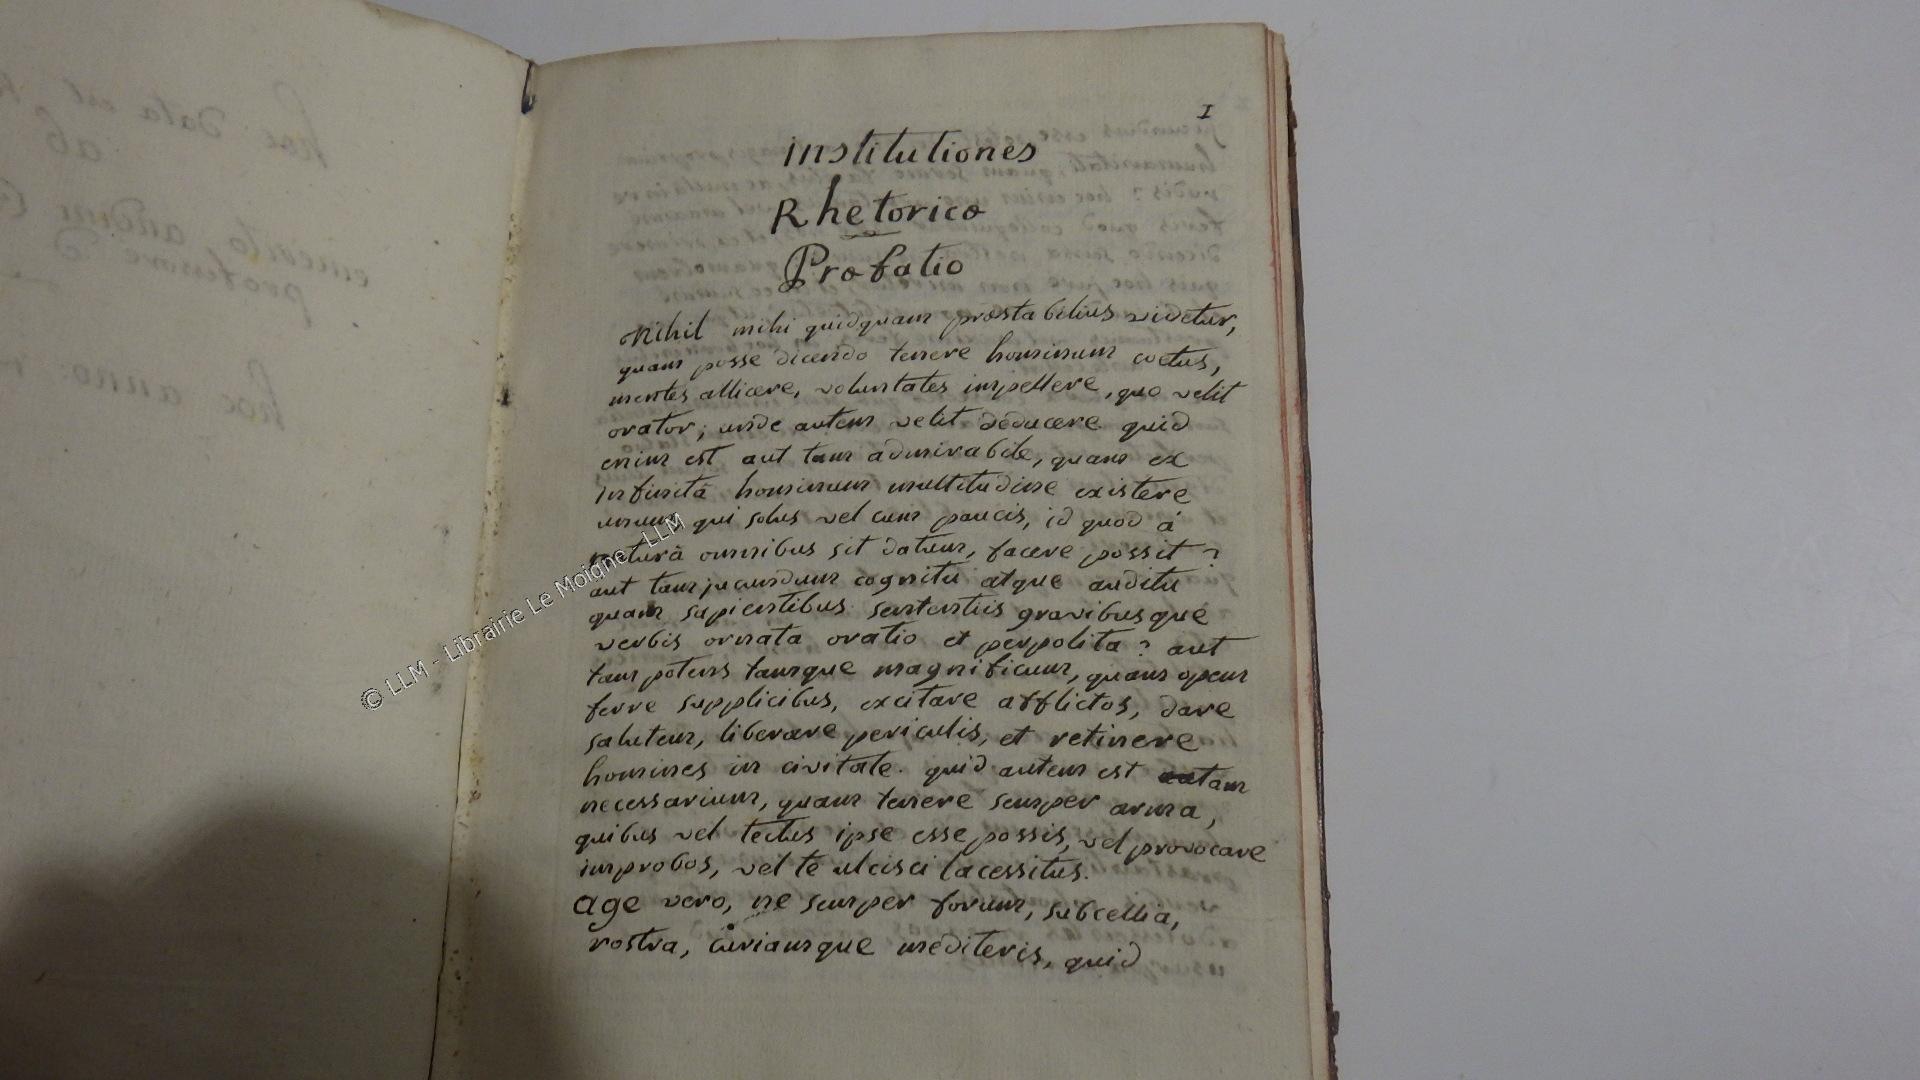 I
institutiones
Rhetoricæ
Præfatio
Nihil mihi quidquam præstabilius videtur,
quam posse dicendo tenere hominum coetus,
mentes allicere, voluntates impellere, quo velit
orator; unde autem velit deducere quid
enim est aut tam admirabile, quam ex
infinitâ hominum multitudine existere
unum qui solus vel cum paucis, id quod à
naturâ omnibus sit datum, facere possit?
aut tam jucundum cognitu atque auditu
quam sapientibus sententiis gravibusque
verbis ornata oratio et perpolita? aut
tam potens tamque magnificum, quam opem
ferre supplicibus, excitare afflictos, dare
salutem, liberare periculis, et retinere
homines in civitate. quid autem est tam
necessarium, quam tenere semper arma,
quibus vel tectus ipse esse possis, vel provocare
improbos, vel te ulcisci lacessitus.
age vero, ne semper forum, subcellia,
rostra, curiamque mediteris, quid
© LLM - Librairie Le Moigne - LLM